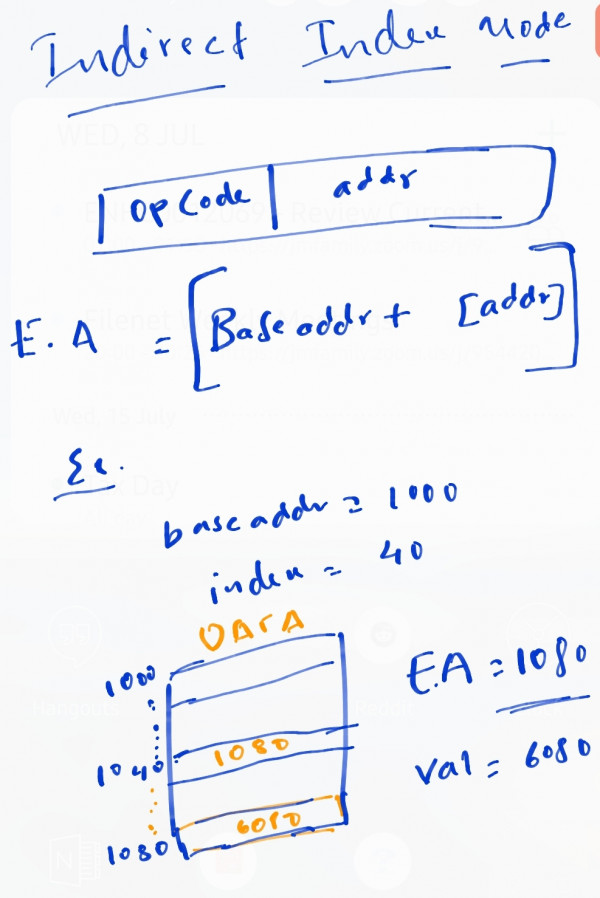 Indirect Index Mode
OpCode addr
E.A = [Base addr + [addr]]
Ex.
base addr = 1000
index = 40
DATA
1000
1040 1080
1080 6080
E.A = 1080
val = 6080
WED, 8 JUL
Wed, 15 July
Day